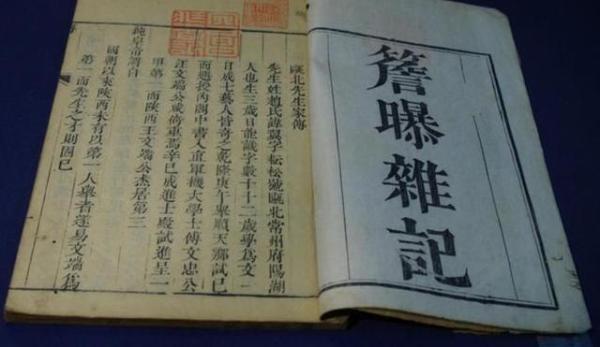 簷曝雜記
甌北先生家傳
先生姓趙氏諱翼字耘松號甌北常州府陽湖
人也生三歲日能識字數十十二歲學爲文一
日成七藝人皆奇之乾隆庚午舉順天鄉試已
而授內閣中書入直軍機大學士傅文忠公
汪文端公咸倚重焉辛巳成進士殿試進呈一
甲第一而陝西王文端公杰居第三
純皇帝謂自
國朝以來陝西未有以第一人舉者遂易文端爲
第一而先生之才則固已